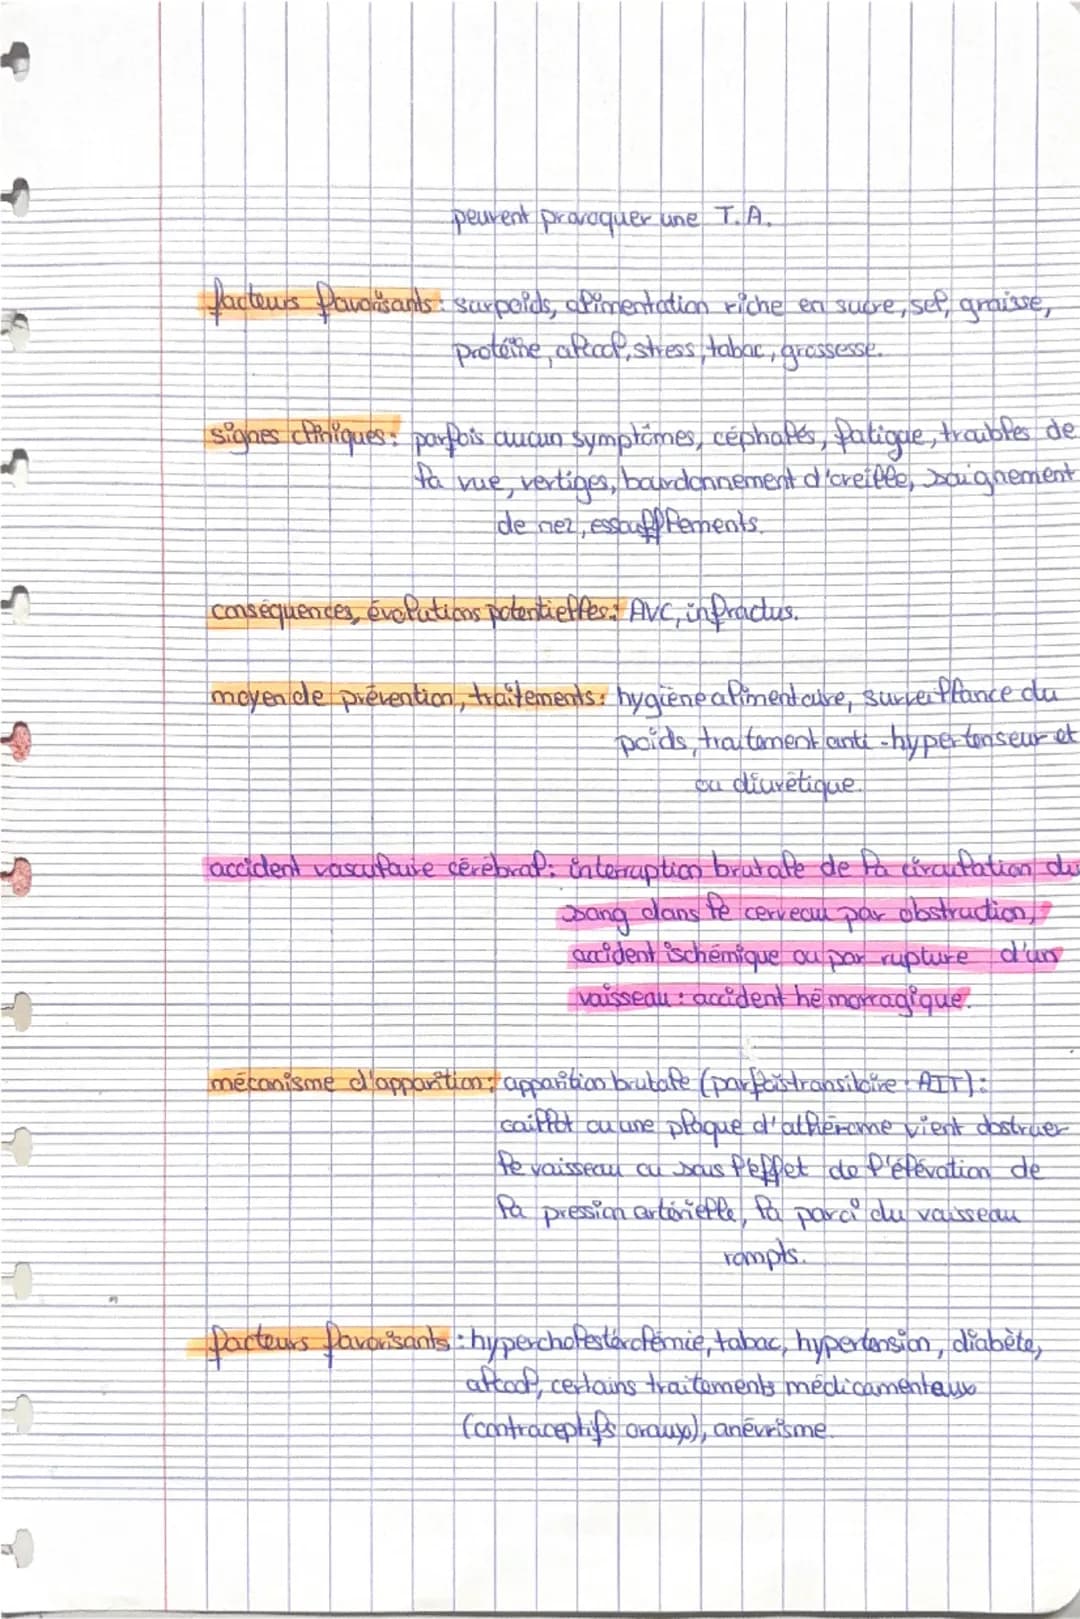 peuvent provoquer une T.A.
facteurs favorisants : surpoids, alimentation riche en sucre, sel, graisse,
protéine, alcool, stress, tabac, grossesse.
signes cliniques : parfois aucun symptômes, céphalés, fatigue, troubles de
la vue, vertiges, bourdonnement d'oreille, saignement
de nez, essoufflements.
conséquences, évolutions potentielles : AVC, infractus.
moyen de prévention, traitements : hygiène alimentaire, surveillance du
poids, traitement anti-hypertenseur et
ou diurétique.
accident vasculaire cérébral : interruption brutale de la circulation du
sang dans le cerveau par obstruction,
accident ischémique ou par rupture d'un
vaisseau : accident hémorragique.
mécanisme d'apparition : apparition brutale (parfois transitoire : AIT) :
caillot ou une plaque d'athérome vient obstruer
le vaisseau ou sous l'effet de l'élévation de
la pression artérielle, la paroi du vaisseau
rompts.
facteurs favorisants : hypercholestérolémie, tabac, hypertension, diabète,
alcool, certains traitements médicamenteux
(contraceptifs oraux), anévrisme.